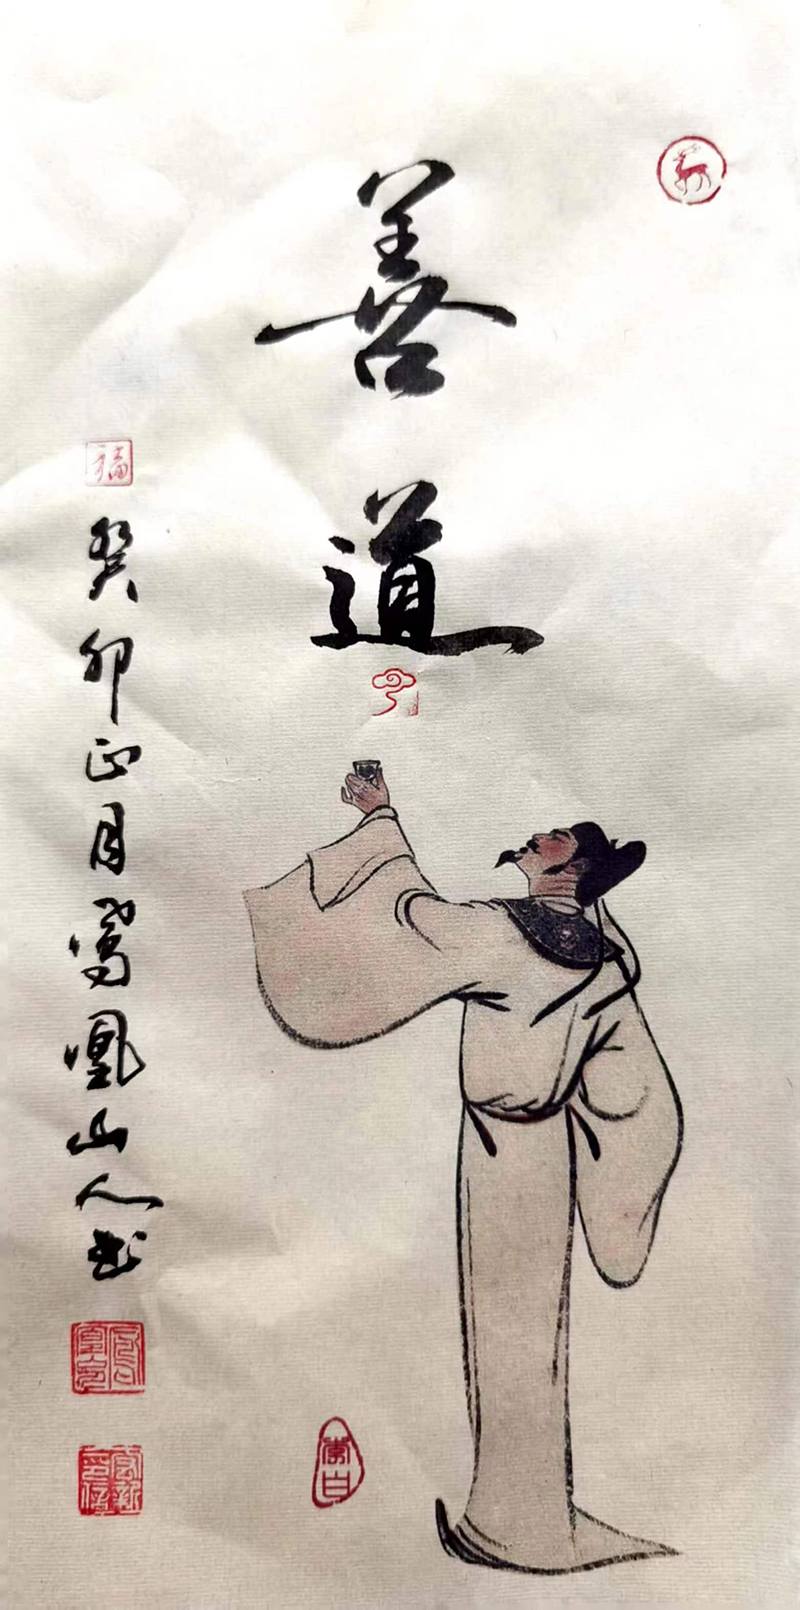 善道
福
癸卯正月鳳凰山人书